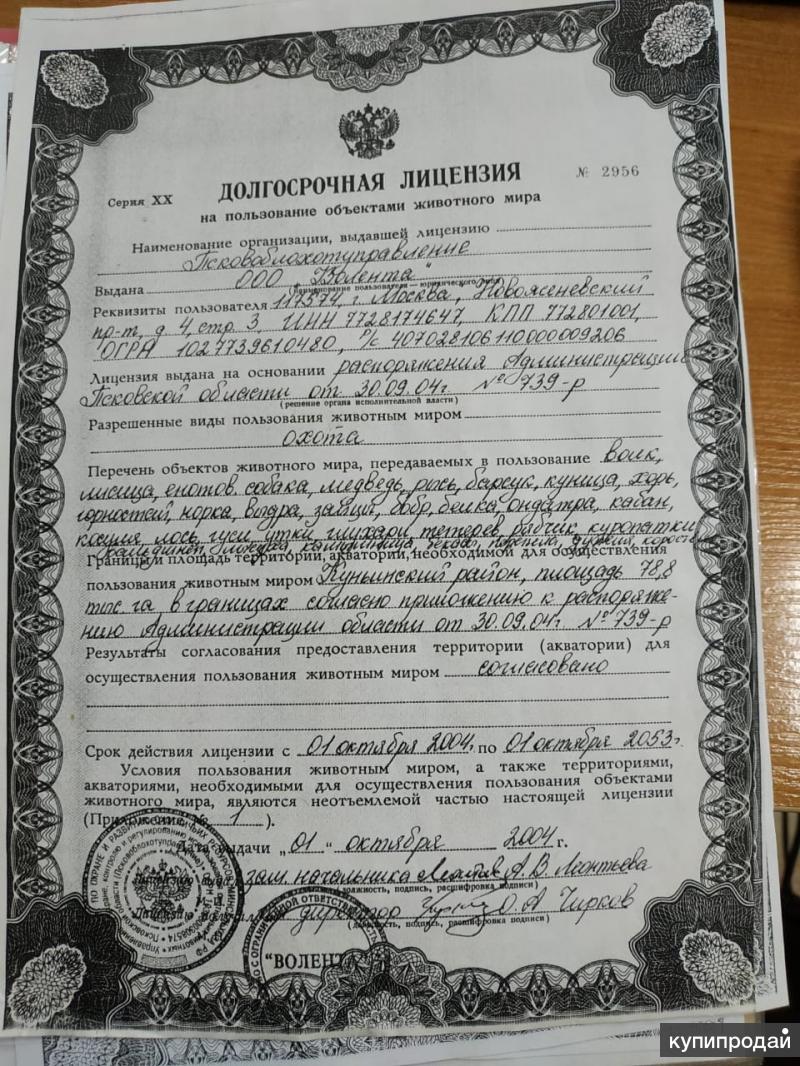 Серия XX
ДОЛГОСРОЧНАЯ ЛИЦЕНЗИЯ
№ 2956
на пользование объектами животного мира
Наименование организации, выдавшей лицензию
Псковоблохотуправление
Выдана ООО "Волента"
(наименование пользователя — юридического лица)
Реквизиты пользователя 117574, г. Москва, Новоясеневский
пр-т, д 4, стр. 3, ИНН 7728174647, КПП 772801001,
ОГРН 1027739610480, р/с 40702810611000009206
Лицензия выдана на основании распоряжения Администрации
Псковской области от 30.09.04г. № 739-р
(решение органа исполнительной власти)
Разрешенные виды пользования животным миром
охота
Перечень объектов животного мира, передаваемых в пользование волк,
лисица, енотов. собака, медведь, рысь, барсук, куница, хорь,
горностай, норка, выдра, зайцы, бобр, белка, ондатра, кабан,
косуля, лось, гуси, утки, глухари, тетерев, рябчик, куропатки
вальдшнеп, голуби, перепела, коростель
Границы и площадь территории, акватории, необходимой для осуществления
пользования животным миром Куньинский район, площадь 78,8
тыс. га в границах согласно приложению к распоряже-
нию Администрации области от 30.09.04г. № 739-р
Результаты согласования предоставления территории (акватории) для
осуществления пользования животным миром согласовано
Срок действия лицензии с 01 октября 2004г. по 01 октября 2053г.
Условия пользования животным миром, а также территориями,
акваториями, необходимыми для осуществления пользования объектами
животного мира, являются неотъемлемой частью настоящей лицензии
(Приложение № 1 ).
Дата выдачи „ 01 " октября 2004 г.
зам. начальника А. В. Леонтьева
(должность, подпись, расшифровка подписи)
директор О. А Чирков
(должность, подпись, расшифровка подписи)
"ВОЛЕНТА"
купипродай